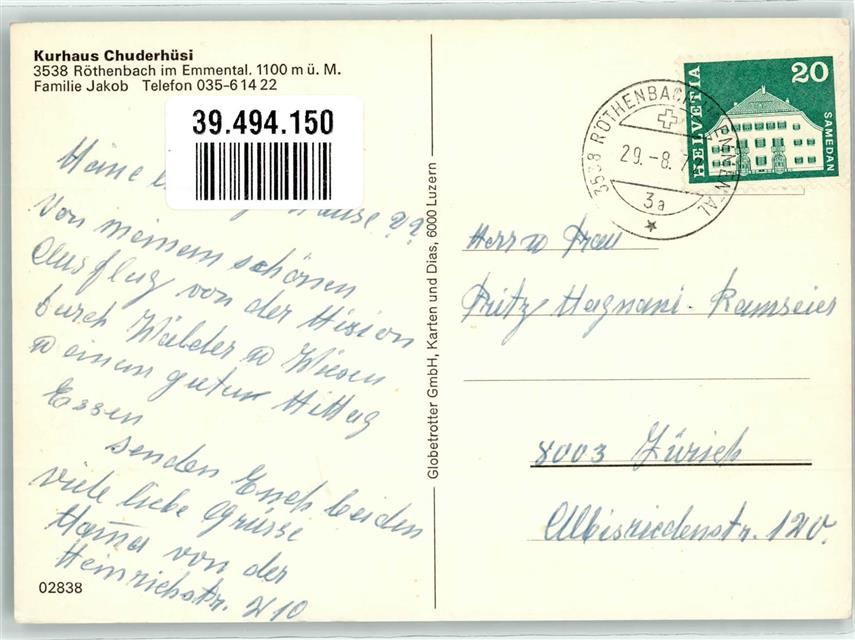 Kurhaus Chuderhüsi
3538 Röthenbach im Emmental. 1100 m ü. M.
Familie Jakob Telefon 035-6 14 22
39.494.150
Meine
Von meinem schönen
Ausflug von der Mision
durch Wälder u Wiesen
u einem guten Mittag
Essen
senden Euch beiden
viele liebe Grüsse
Mama von der
Heinrichstr. 210
02838
Globetrotter GmbH, Karten und Dias, 6000 Luzern
3538 RÖTHENBACH I. EMMENTAL
29.-8.7
3a
HELVETIA
20
SAMEDAN
Herr u Frau
Fritz Magnani-Ramseier
8003 Zürich
Albisriedenstr. 120.